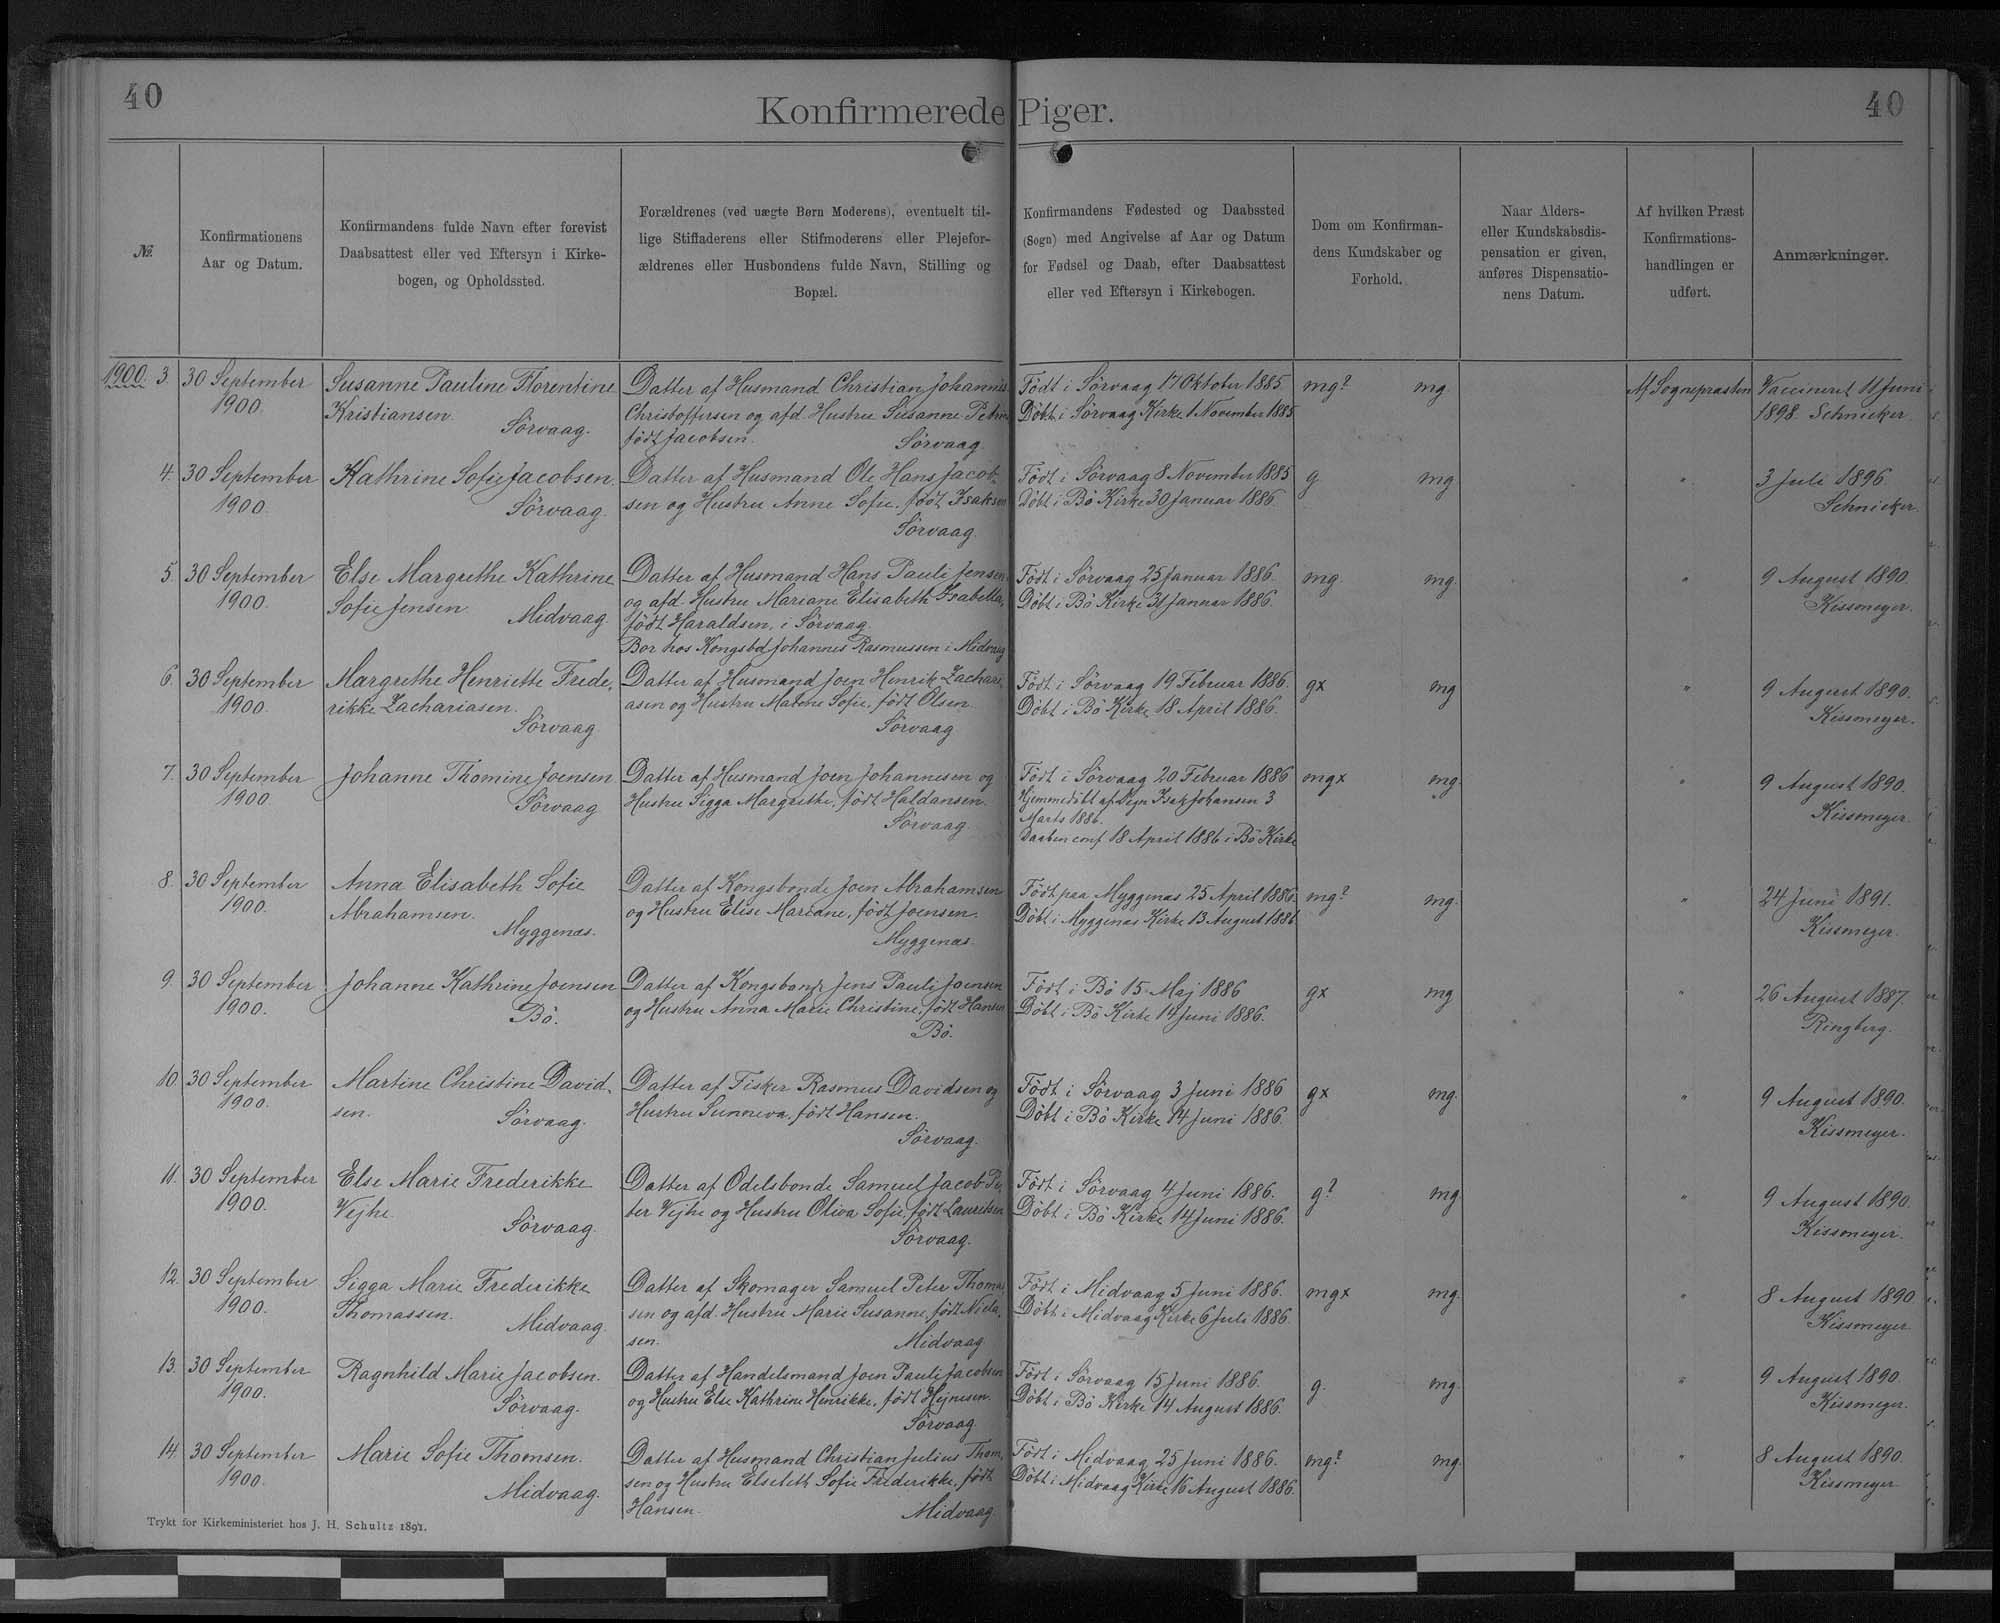 40
Konfirmerede Piger.
40
№
Konfirmationens
Aar og Datum.
Konfirmandens fulde Navn efter forevist
Daabsattest eller ved Eftersyn i Kirke-
bogen, og Opholdssted.
Forældrenes (ved uægte Børn Moderens), eventuelt til-
lige Stiffaderens eller Stifmoderens eller Plejefor-
ældrenes eller Husbondens fulde Navn, Stilling og
Bopæl.
Konfirmandens Fødested og Daabssted
(Sogn) med Angivelse af Aar og Datum
for Fødsel og Daab, efter Daabsattest
eller ved Eftersyn i Kirkebogen.
Dom om Konfirman-
dens Kundskaber og
Forhold.
Naar Alders-
eller Kundskabsdis-
pensation er given,
anføres Dispensatio-
nens Datum.
Af hvilken Præst
Konfirmations-
handlingen er
udført.
Anmærkninger.
1900. 3.
30 September
1900.
Susanne Pauline Florentine
Kristiansen.
Sörvaag.
Datter af Husmand Christian Johannes
Christoffersen og afd. Hustru Susanne Petrine
født Jacobsen.
Sörvaag.
Födt i Sörvaag 17 Oktober 1885
Döbt i Sörvaag Kirke 1 November 1885
mg? mg.
Af Sognepræsten
Vaccineret 11 Juni
1898. Schnieker.
4.
30 September
1900.
Kathrine Sofie Jacobsen.
Sörvaag.
Datter af Husmand Ole Hans Jacob-
sen og Hustru Anne Sofie, født Isaksen
Sörvaag.
Födt i Sörvaag 8 November 1885
Döbt i Bö Kirke 30 Januar 1886.
g. mg
"
3 Juli 1896.
Schnieker.
5.
30 September
1900.
Else Margrethe Kathrine
Sofie Jensen.
Midvaag.
Datter af Husmand Hans Pauli Jensen
og afd. Hustru Mariane Elisabeth Isabella,
født Haraldsen, i Sörvaag.
Bor hos Kongsbd Johannes Rasmussen i Midvaag
Födt i Sörvaag 25 Januar 1886.
Döbt i Bö Kirke 31 Januar 1886.
mg. mg.
"
9 August 1890.
Kissmeyer.
6.
30 September
1900.
Margrethe Henriette Frede-
rikke Zachariasen.
Sörvaag.
Datter af Husmand Joen Henrik Zachari-
asen og Hustru Marene Sofie, født Olsen.
Sörvaag
Födt i Sörvaag 19 Februar 1886.
Döbt i Bö Kirke 18 April 1886.
gx mg
"
9 August 1890.
Kissmeyer.
7.
30 September
1900.
Johanne Thomine Joensen
Sörvaag
Datter af Husmand Joen Johannesen og
Hustru Sigga Margrethe, født Haldansen.
Sörvaag.
Födt i Sörvaag 20 Februar 1886
Hjemmedöbt af Degn Isak Johansen 3
Marts 1886.
Daaben conf 18 April 1886 i Bö Kirke
mgx mg.
"
9 August 1890.
Kissmeyer.
8.
30 September
1900.
Anna Elisabeth Sofie
Abrahamsen.
Myggenæs.
Datter af Kongsbonde Joen Abrahamsen
og Hustru Elise Mariane, født Joensen.
Myggenæs.
Födt paa Myggenæs 25 April 1886.
Döbt i Myggenæs Kirke 13 August 1886
mg? mg.
"
24 Juni 1891.
Kissmeyer.
9.
30 September
1900.
Johanne Kathrine Joensen
Bö.
Datter af Kongsbonde Jens Pauli Joensen
og Hustru Anna Marie Christine, født Hansen
Bö.
Födt i Bö 15 Maj 1886
Döbt i Bö Kirke 14 Juni 1886.
gx mg
"
26 August 1887.
Ringberg.
10.
30 September
1900.
Martine Christine David-
sen.
Sörvaag.
Datter af Fisker Rasmus Davidsen og
Hustru Sunneva, født Hansen.
Sörvaag.
Födt i Sörvaag 3 Juni 1886
Döbt i Bö Kirke 14 Juni 1886.
gx mg.
"
9 August 1890.
Kissmeyer.
11.
30 September
1900.
Else Marie Frederikke
Vejhe.
Sörvaag.
Datter af Odelsbonde Samuel Jacob Pe-
ter Vejhe og Hustru Oliva Sofie, født Lauritsen
Sörvaag.
Födt i Sörvaag 4 Juni 1886.
Döbt i Bö Kirke 14 Juni 1886.
g? mg
"
9 August 1890.
Kissmeyer.
12.
30 September
1900.
Sigga Marie Frederikke
Thomassen.
Midvaag.
Datter af Skomager Samuel Peter Thomas-
sen og afd. Hustru Marie Susanne, født Niela-
sen.
Midvaag
Födt i Midvaag 5 Juni 1886.
Döbt i Midvaag Kirke 6 Juli 1886.
mgx mg.
"
8 August 1890
Kissmeyer
13.
30 September
1900.
Ragnhild Marie Jacobsen.
Sörvaag.
Datter af Handelsmand Joen Pauli Jacobsen
og Hustru Else Kathrine Henrikke, født Hejnesen.
Sörvaag.
Födt i Sörvaag 15 Juni 1886.
Döbt i Bö Kirke 14 August 1886.
g. mg.
"
9 August 1890.
Kissmeyer.
14.
30 September
1900.
Marie Sofie Thomsen.
Midvaag.
Datter af Husmand Christian Julius Thom-
sen og Hustru Elsebeth Sofie Frederikke, født
Hansen.
Midvaag.
Födt i Midvaag 25 Juni 1886.
Döbt i Midvaag Kirke 16 August 1886.
mg? mg.
"
8 August 1890.
Kissmeyer
Trykt for Kirkeministeriet hos J. H. Schultz 1891.